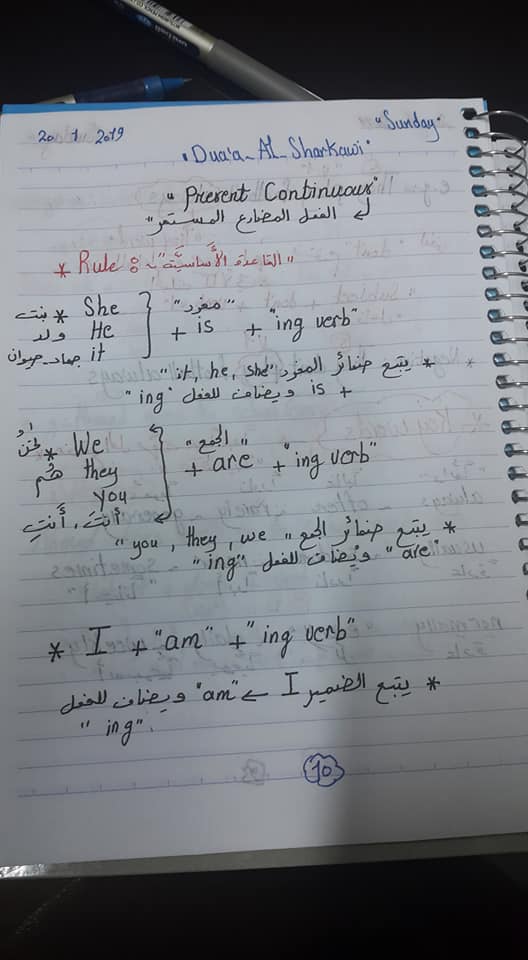 "Sunday"
20 1 2019
• Dua'a - Al - Sharkawi •
"Present Continuous"
↲ الفعل المضارع المستمر"
* Rule : ~ "القاعدة الأساسيَّة"
بنت * She "مفرد"
ولد He + is + "ing verb"
جماد - حيوان it
* يتبع ضمائر المفرد "it, he, she"
+ is ويضاف للفعل "ing"
أو
نحن * We "الجمع"
هُم they + are + "ing verb"
you
أنتَ، أنتِ
* يتبع ضمائر الجمع "you, they, we"
"are" ويُضاف للفعل "ing"
* I + "am" + "ing verb"
* يتبع الضمير I ← "am" ويضاف للفعل
"ing".
10